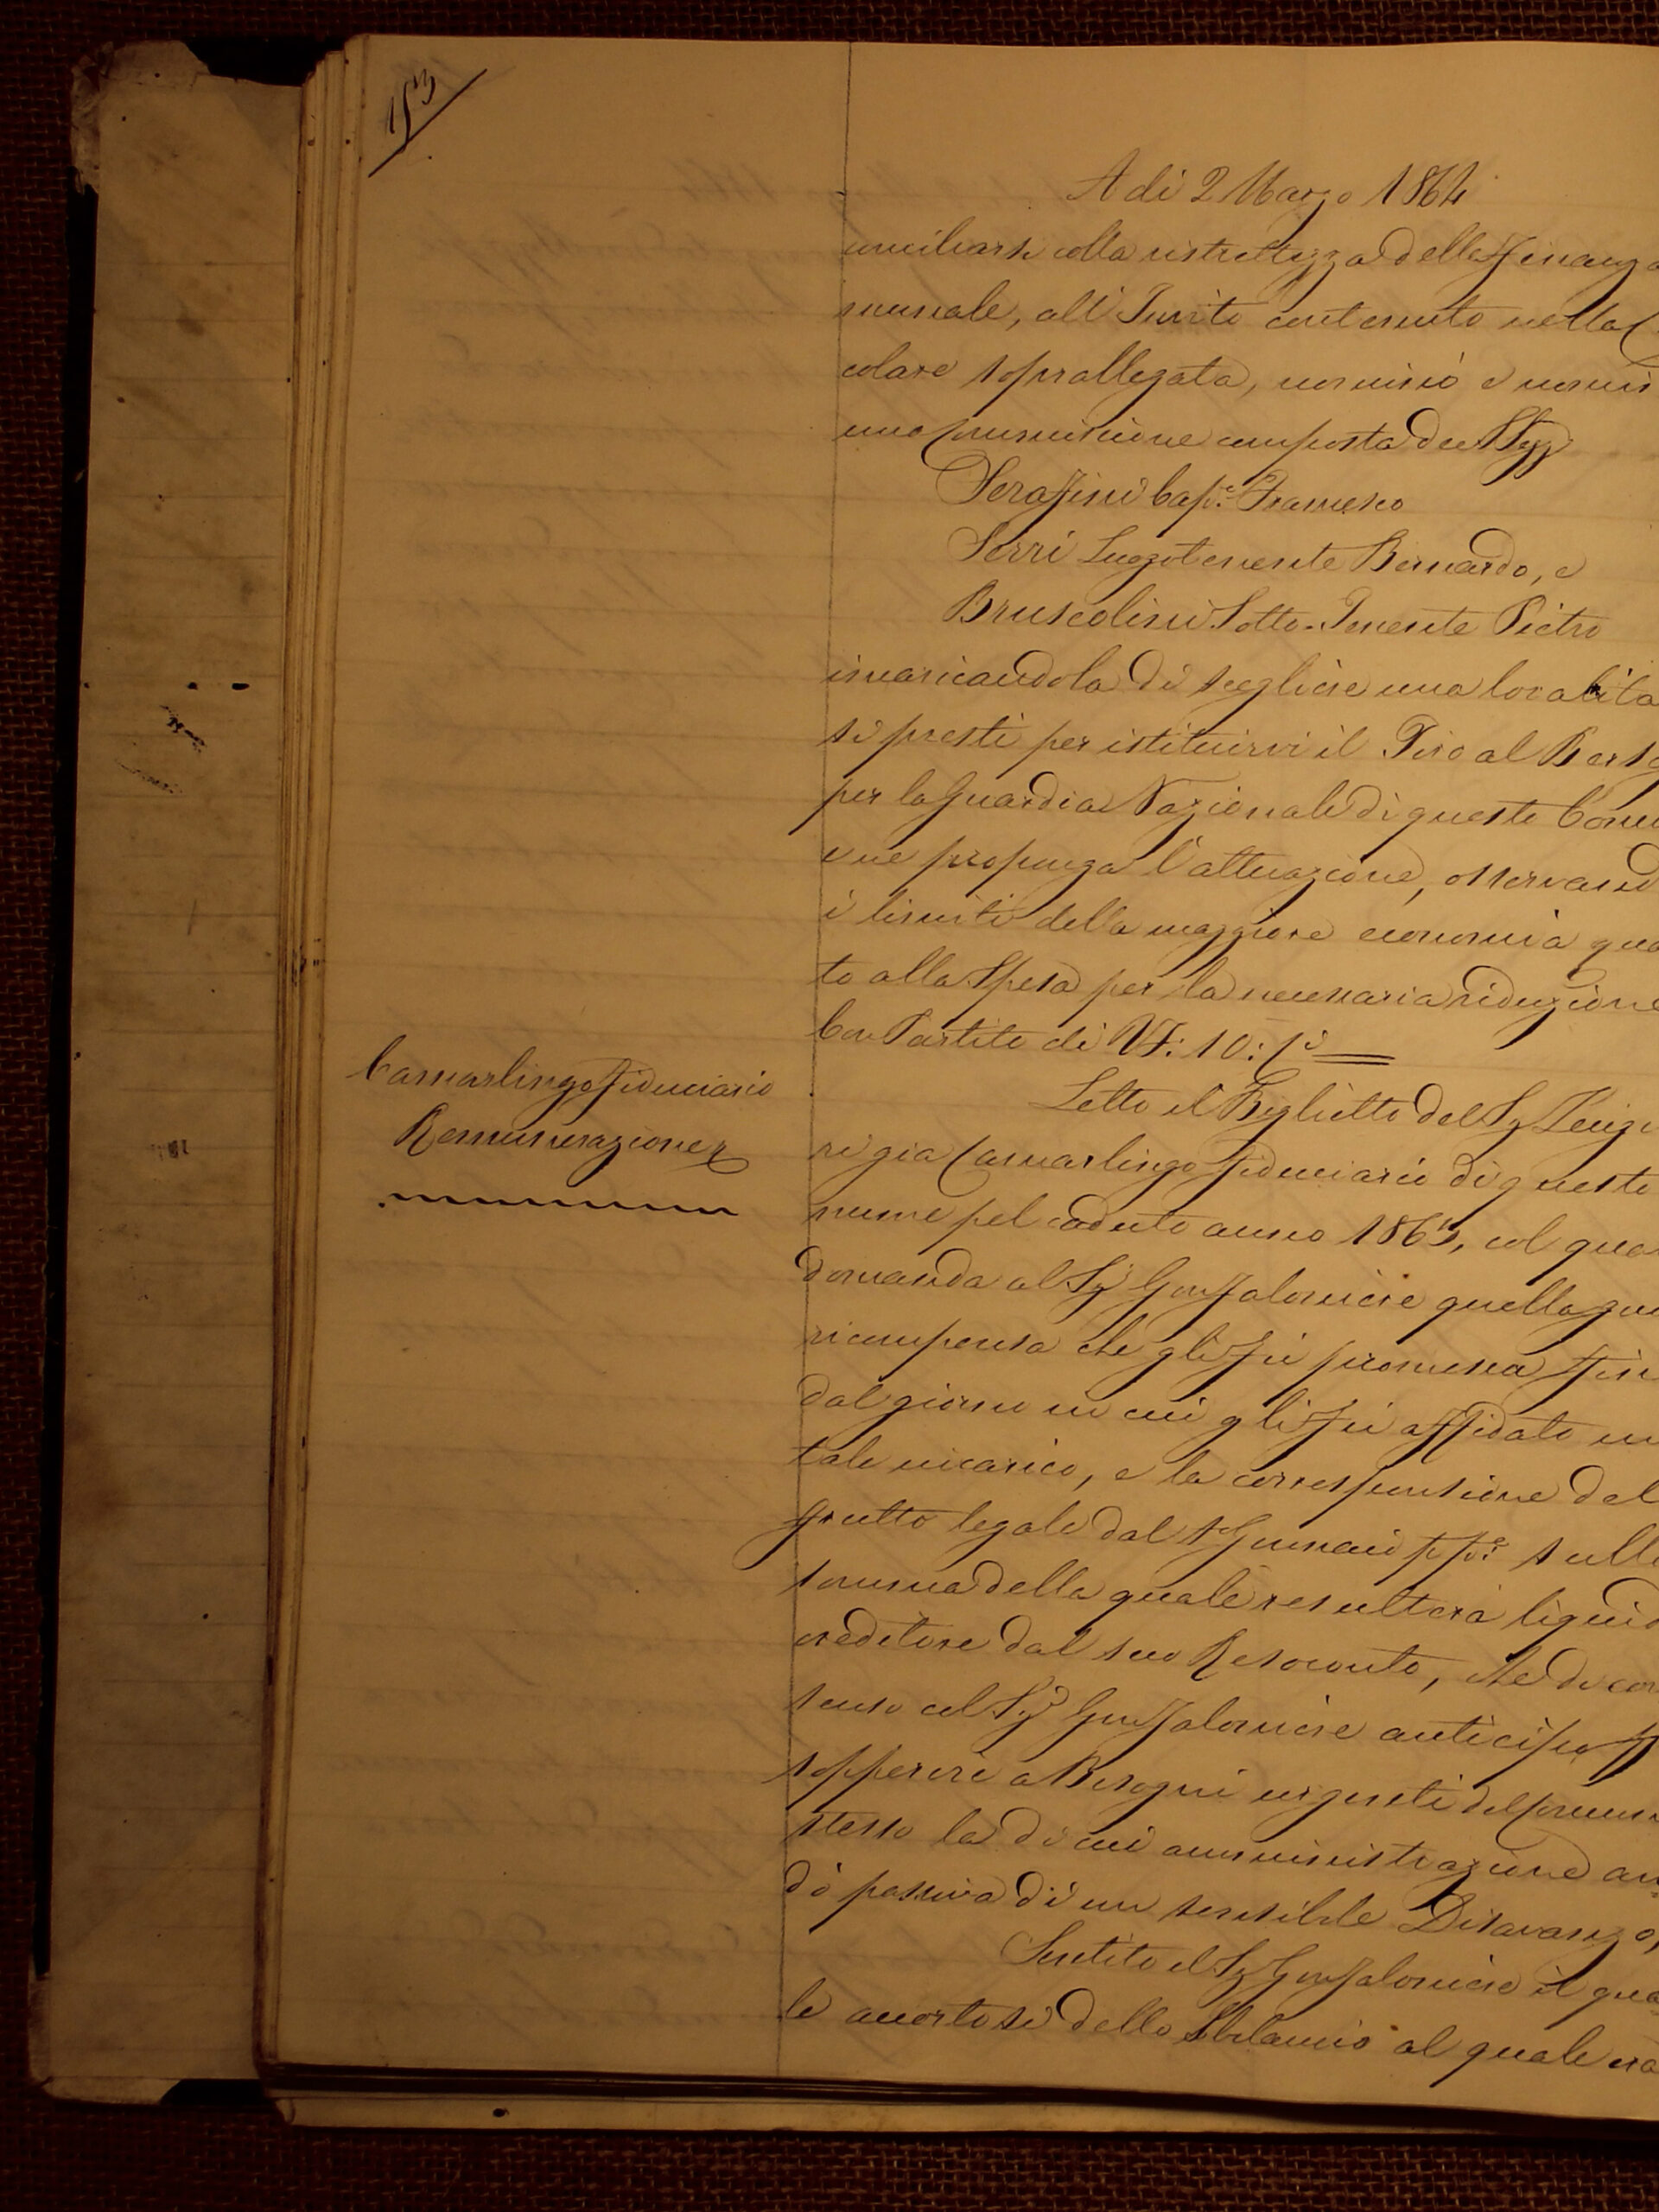 153
A di 2 Marzo 1864
conciliarsi colla ristrettezza delle Finanza
munale, all'Invito contenuto nella C
colare soprallegata, nominò e nomin
una Commissione composta dei Sigg.
Serafini Cap.e Francesco
Serri Luogotenente Bernardo, e
Bruscolini Sotto-Tenente Pietro
incaricandola di scegliere una località
si presti per istituirvi il Tiro al Bersa
per la Guardia Nazionale di questo Comu
e ne proponga l'attuazione, osservand
i limiti della maggiore economia qua
to alla Spesa per la necessaria riduzione
Con Partito di Vf: 10: c.i
Camarlingo fiduciario
Remunerazione
Letto il Biglietto del Sig. Luigi
ri già Camarlingo fiduciario di questo
mune pel caduto anno 1863, col qua
domanda al Sig. Gonfaloniere quella qua
ricompensa che gli fu promessa fin
dal giorno in cui gli fu affidato un
tale incarico, e la corresponsione del
frutto legale dal 1° Gennaio p.p.o sulla
somma della quale resulterà liquid
creditore dal suo Resoconto, che di con
senso col Sig. Gonfaloniere anticipò p
sopperire a Bisogni urgenti del Comun
stesso la di cui amministrazione an
dò passiva di un sensibile Disavanzo,
Sentito il Sig. Gonfaloniere il qua
le accortosi dello Sbilancio al quale era